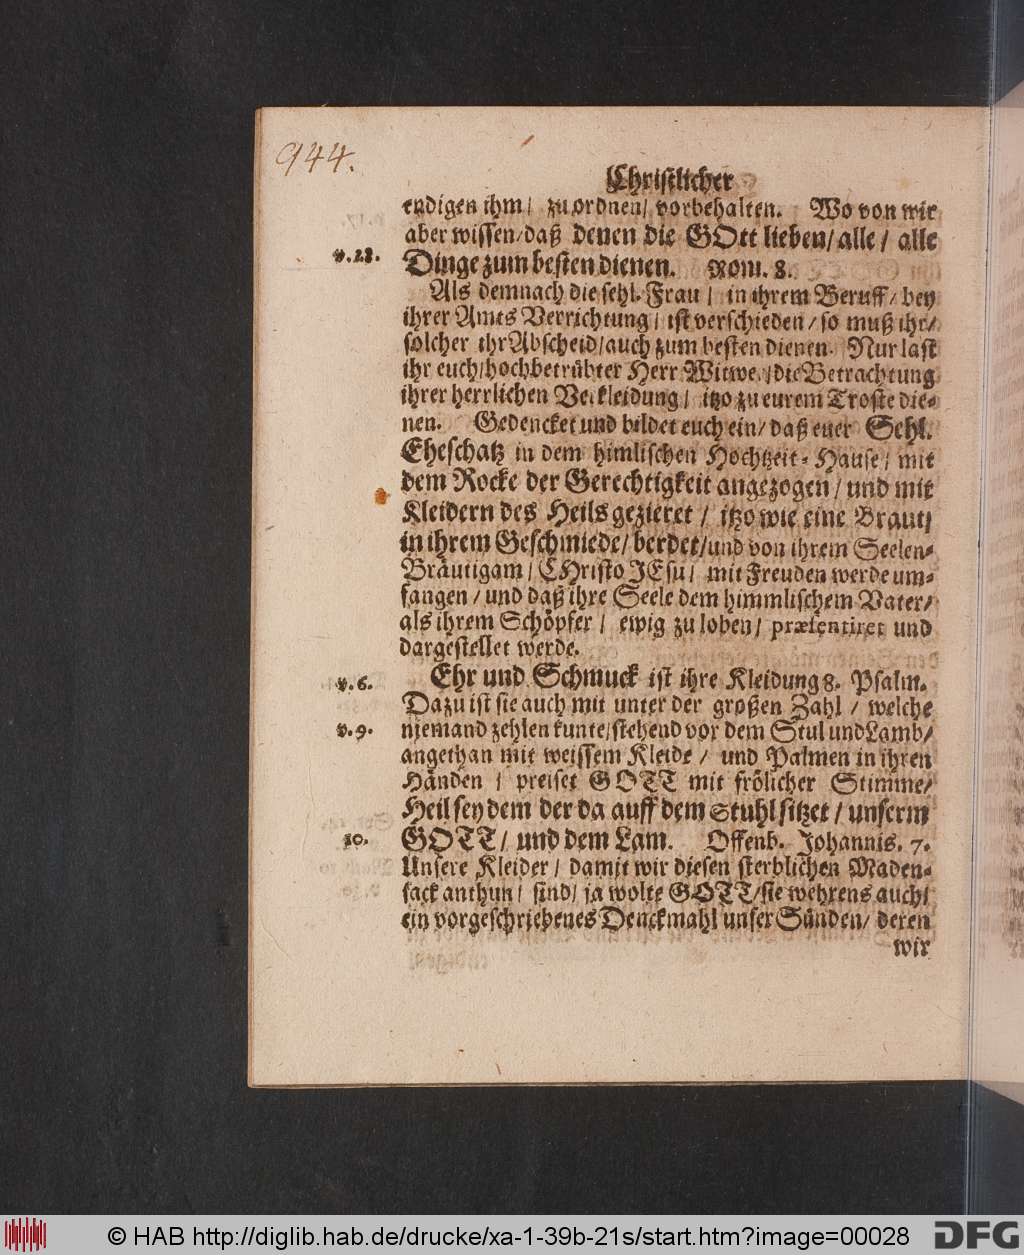 944.
Christlicher
endigen ihm/ zu ordnen/ vorbehalten. Wo von wir
aber wissen/daß denen die GOtt lieben/alle/ alle
v.28. Dinge zum besten dienen. Rom. 8.
Als demnach die sehl. Frau/ in ihrem Beruff/ bey
ihrer Amts Verrichtung/ ist verschieden/so muß ihr/
solcher ihr Abscheid/auch zum besten dienen. Nur last
ihr euch/hochbetrübter Herr Witwe./die Betrachtung
ihrer herrlichen Verkleidung/ itzo zu eurem Troste die-
nen. Gedencket und bildet euch ein/ daß euer Sehl.
Eheschatz in dem himlischen Hochtzeit-Hause/ mit
dem Rocke der Gerechtigkeit angezogen/und mit
Kleidern des Heils gezieret/ itzo wie eine Braut/
in ihrem Geschmiede/berdet/und von ihrem Seelen-
Bräutigam/ CHristo JEsu/ mit Freuden werde um-
fangen/und daß ihre Seele dem himmlischem Vater/
als ihrem Schöpfer/ ewig zu loben/ præsentiret und
dargestellet werde.
v.6. Ehr und Schmuck ist ihre Kleidung 8. Psalm.
Dazu ist sie auch mit unter der großen Zahl/ welche
v.9. niemand zehlen kunte/stehend vor dem Stul und Lamb/
angethan mit weissem Kleide/ und Palmen in ihren
Händen/ preiset GOTT mit frölicher Stimme/
Heil sey dem der da auff dem Stuhl sitzet/unserm
10. GOTT/ und dem Lam. Offenb. Johannis. 7.
Unsere Kleider/ damit wir diesen sterblichen Maden-
sack anthun/ sind/ ja wolte GOTT/sie wehrens auch/
ein vorgeschriebenes Denckmahl unser Sünden/ deren
wir
© HAB http://diglib.hab.de/drucke/xa-1-39b-21s/start.htm?image=00028
DFG